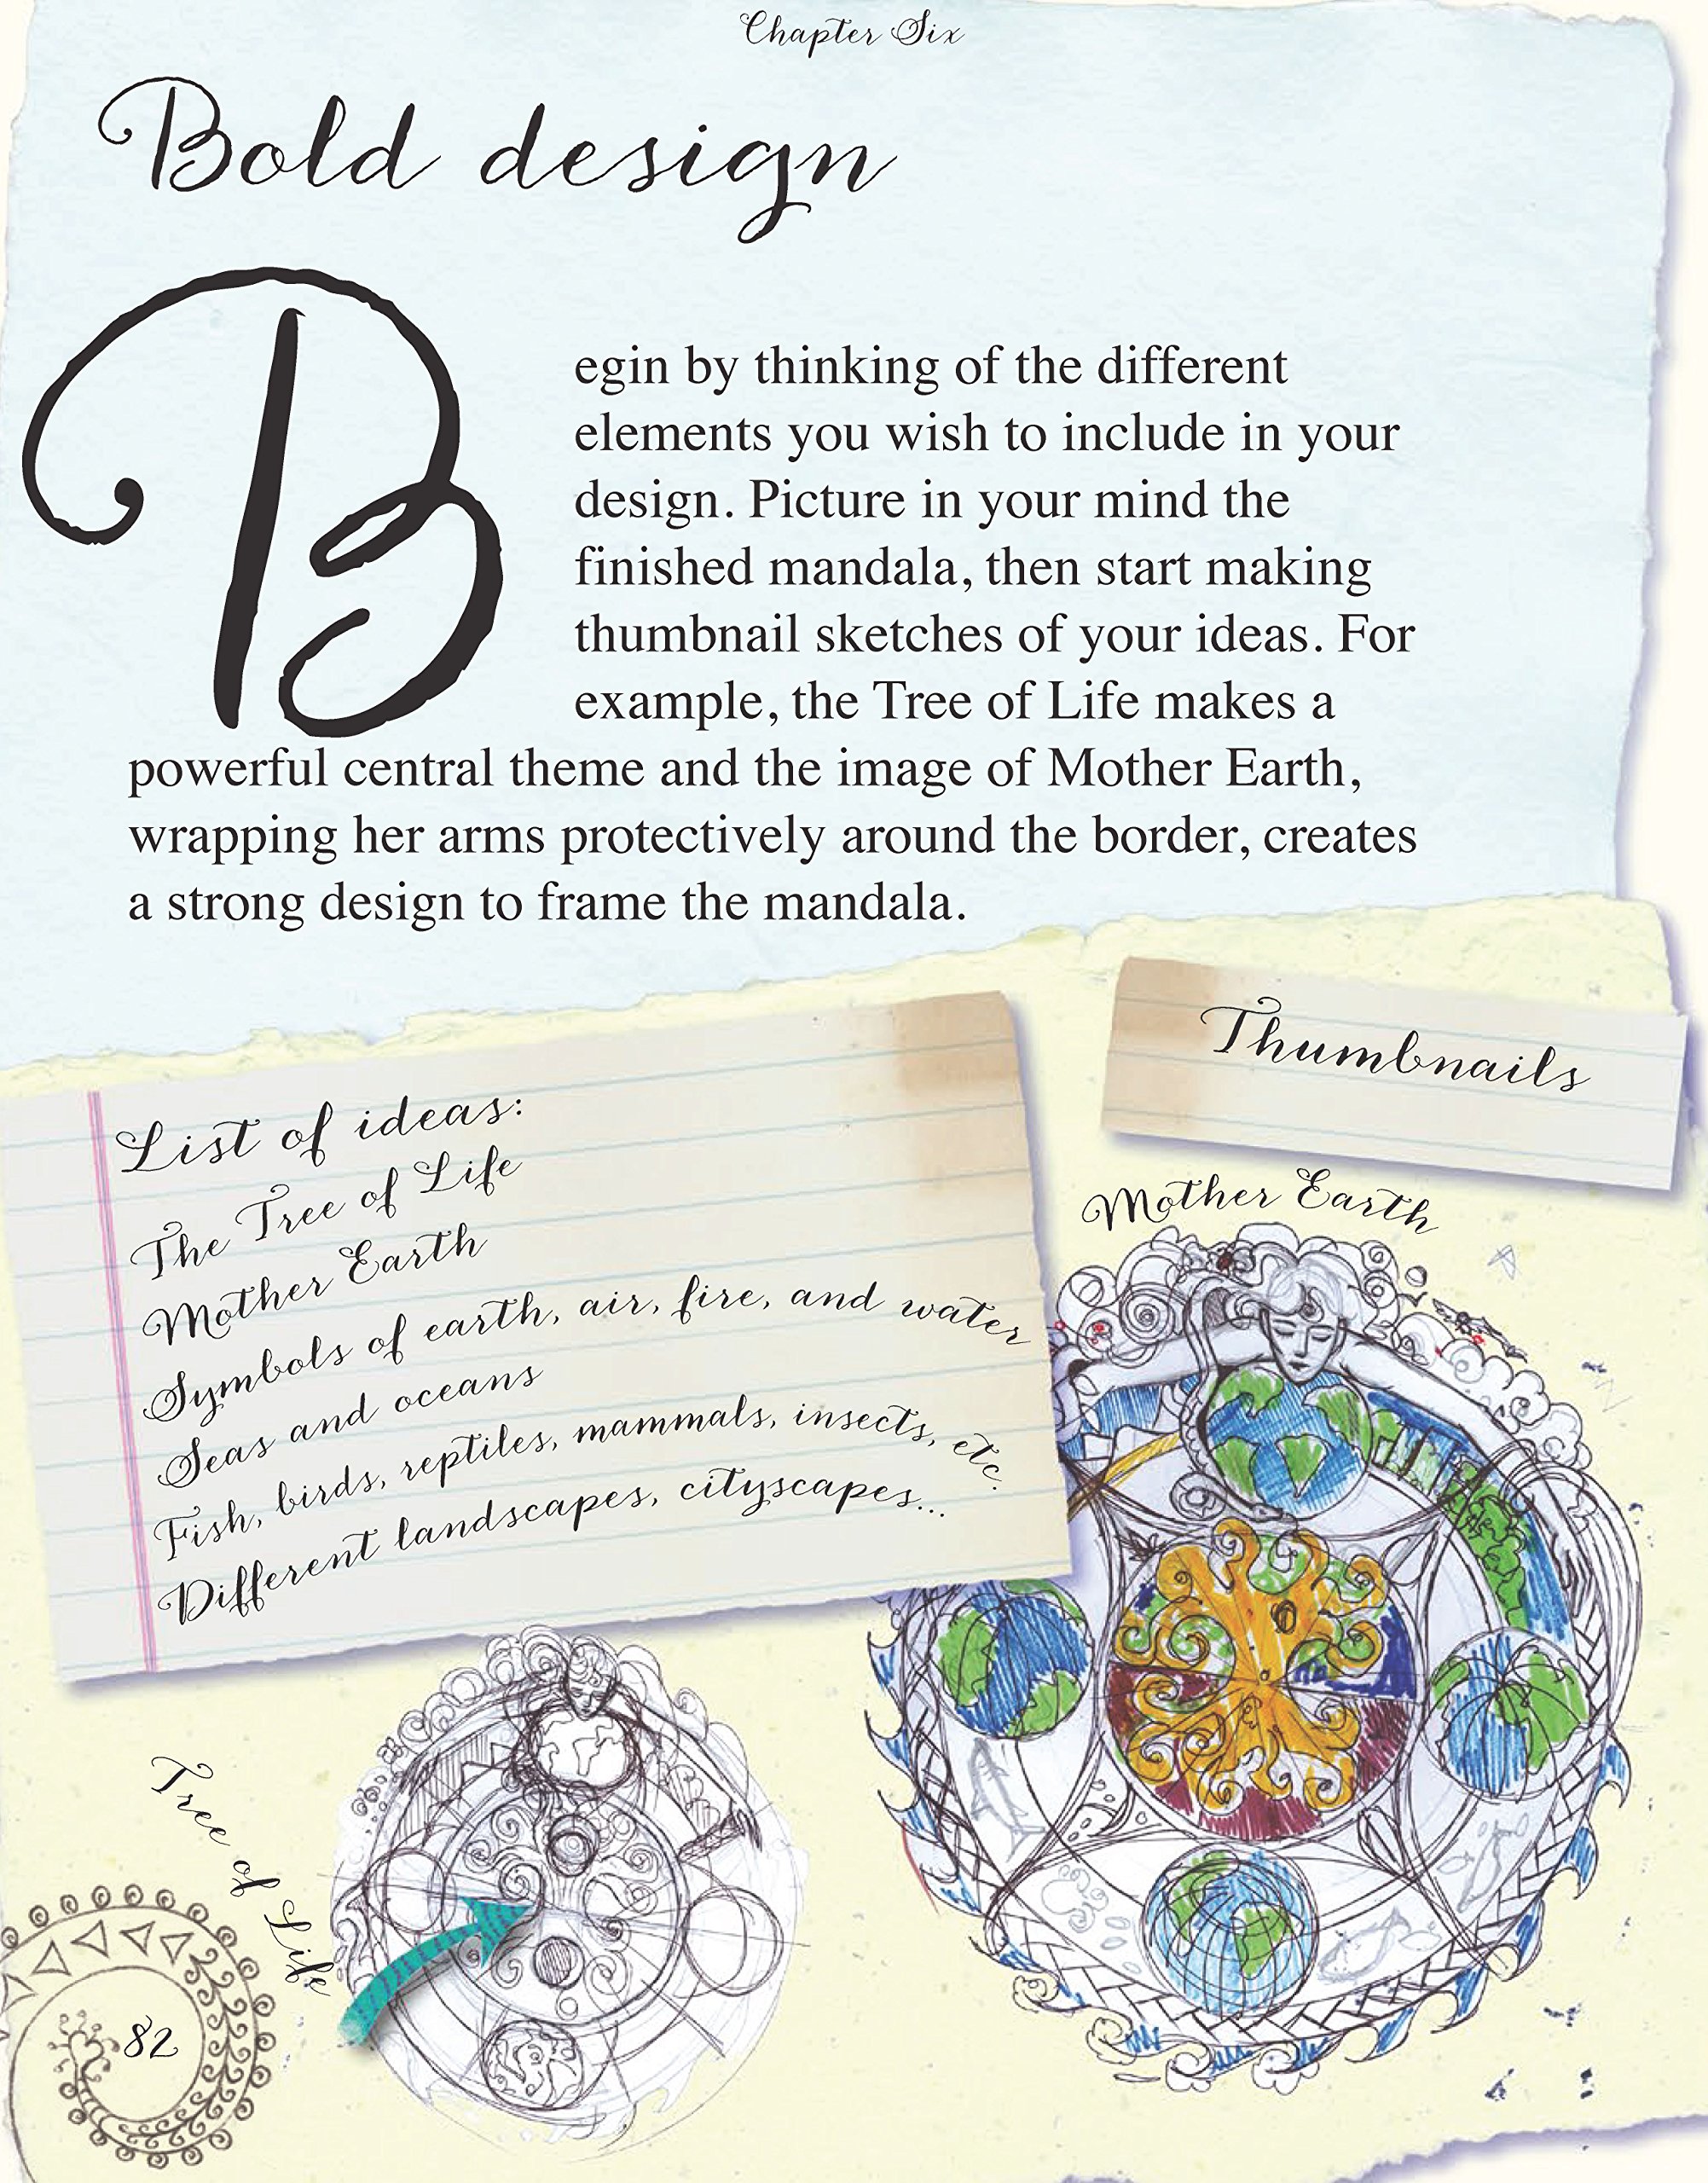 Chapter Six
Bold design
Begin by thinking of the different
elements you wish to include in your
design. Picture in your mind the
finished mandala, then start making
thumbnail sketches of your ideas. For
example, the Tree of Life makes a
powerful central theme and the image of Mother Earth,
wrapping her arms protectively around the border, creates
a strong design to frame the mandala.
Thumbnails
List of ideas:
The Tree of Life
Mother Earth
Symbols of earth, air, fire, and water
Seas and oceans
Fish, birds, reptiles, mammals, insects, etc.
Different landscapes, cityscapes...
Mother Earth
Tree of Life
82